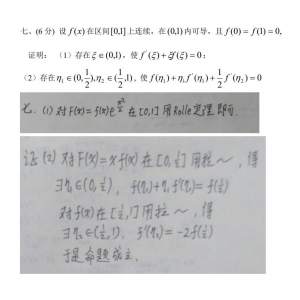 七、(6 分) 设 f(x) 在区间[0,1]上连续，在(0,1)内可导，且 f(0) = f(1) = 0,
证明：（1）存在 ξ∈(0,1)，使 f′(ξ)+ξf(ξ)=0；
（2）存在 η₁∈(0,1/2),η₂∈(1/2,1)，使 f(η₁)+η₁f′(η₁)+1/2 f′(η₂)=0
七、(1) 对F(x)=f(x)e^(x²/2) 在[0,1]用Rolle定理即可.
证 (2) 对F(x)=xf(x) 在[0,1/2]用拉～，得
∃η₁∈(0,1/2)，f(η₁)+η₁f′(η₁)=f(1/2)
对f(x)在[1/2,1]用拉～，得
∃η₂∈(1/2,1)，f′(η₂)=-2f(1/2)
于是命题成立.